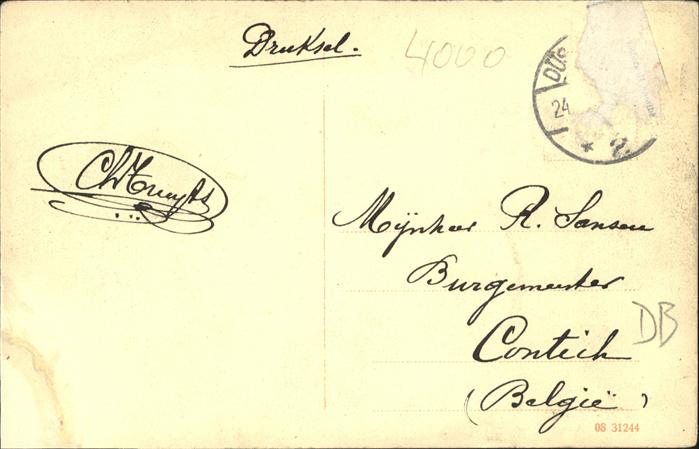 Druksel.
4000
DÜS
24
* 2.
Mijnheer R. Sansen
Burgemeester
Contich
(België)
DB
08 31244